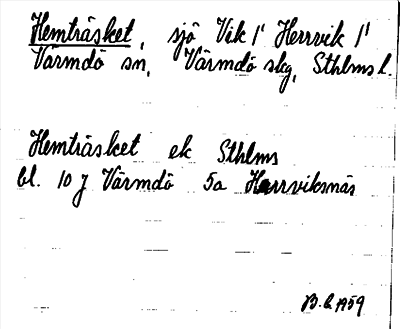 Hemträsket, sjö Vik 1' Herrvik 1'
Värmdö sn, Värmdö skg, Sthlms l.
Hemträsket ek Sthlms
bl. 10 J Värmdö 5a Herrviksnäs
1959